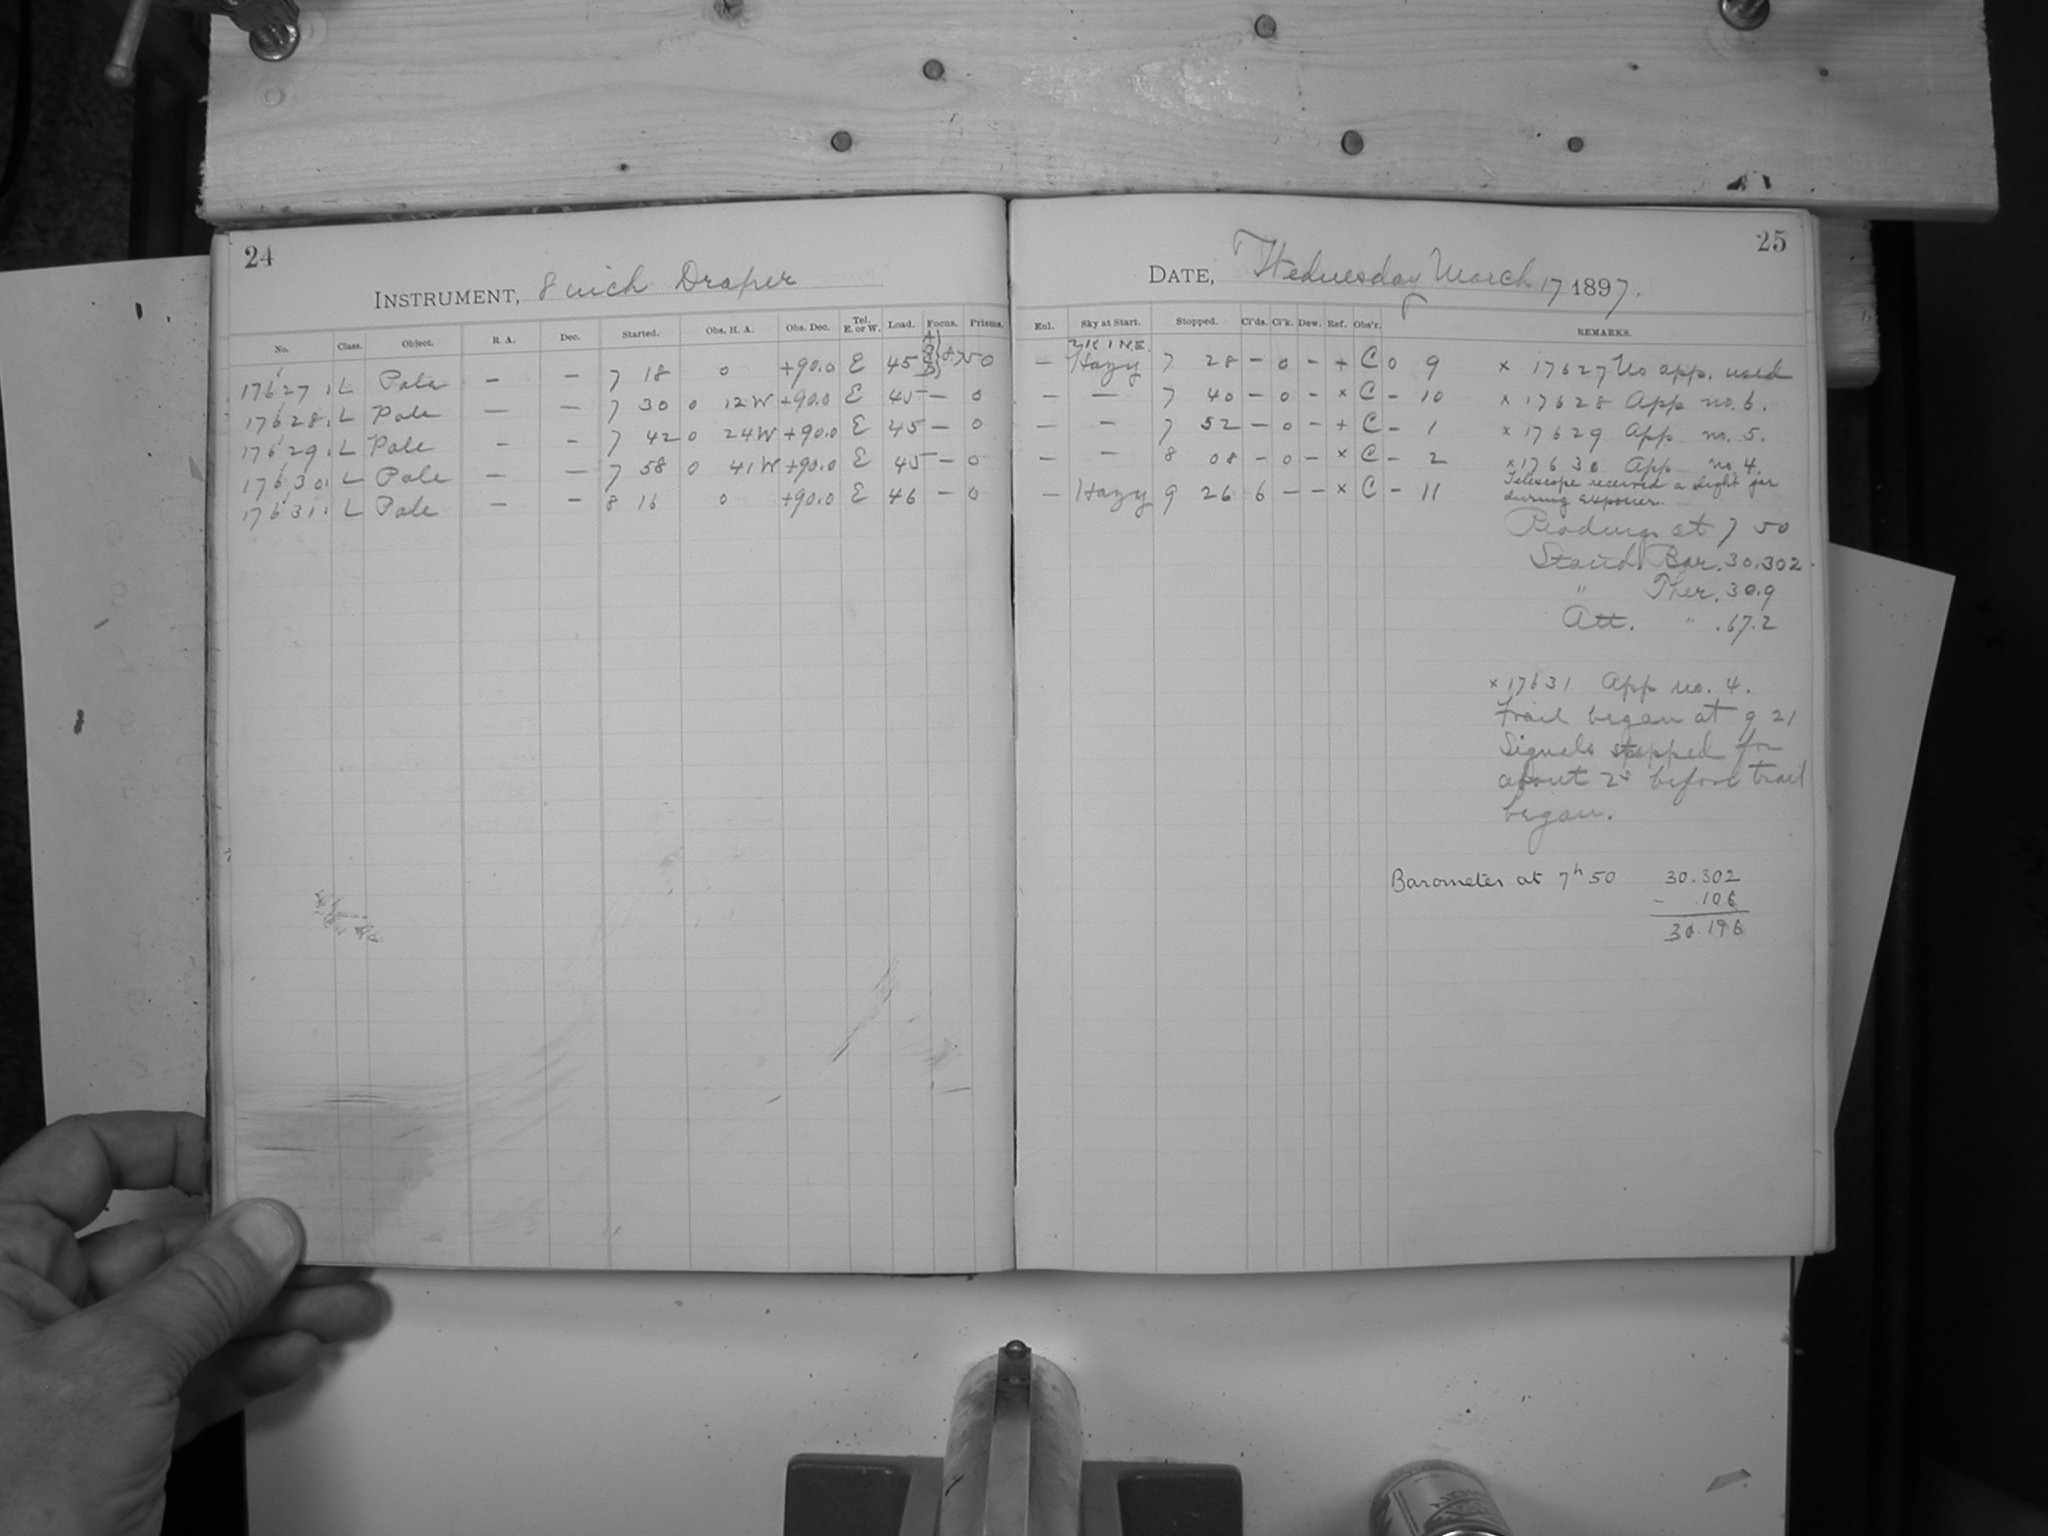 24
INSTRUMENT, 8 inch Draper
No. Class. Object. R. A. Dec. Started. Obs. H. A. Obs. Dec. Tel. E. or W. Load. Focus. Prisms.
17627. L Pole — — 7 18 0 +90.0 E 45 0
17628. L Pole — — 7 30 0 12W +90.0 E 45 — 0
17629. L Pole - - 7 42 0 24W +90.0 E 45 — 0
17630. L Pole — — 7 58 0 41W +90.0 E 45 — 0
17631. L Pole — — 8 16 0 +90.0 E 46 — 0
25
DATE, Wednesday March 17 1897.
Enl. Sky at Start. Stopped. Cl'ds. Cl'k. Dew. Ref. Obs'r. REMARKS.
— Hazy 7 28 — 0 — + C 0 9 × 17627 No app. used
— — 7 40 — 0 — × C — 10 × 17628 App no. 6.
— — 7 52 — 0 — + C — 1 × 17629 App no. 5.
— — 8 08 — 0 — × C — 2 × 17630 App no. 4.
Telescope received a slight jar
during exposure.
— Hazy 9 26 6 — — × C — 11
Readings at 7 50
Stand. Bar. 30.302
" Ther. 30.9
Att. " .67.2
× 17631 App no. 4.
Trail began at 9 21
Signals stopped for
about 2s before trail
began.
Barometer at 7h 50 30.302
- .106
30.196